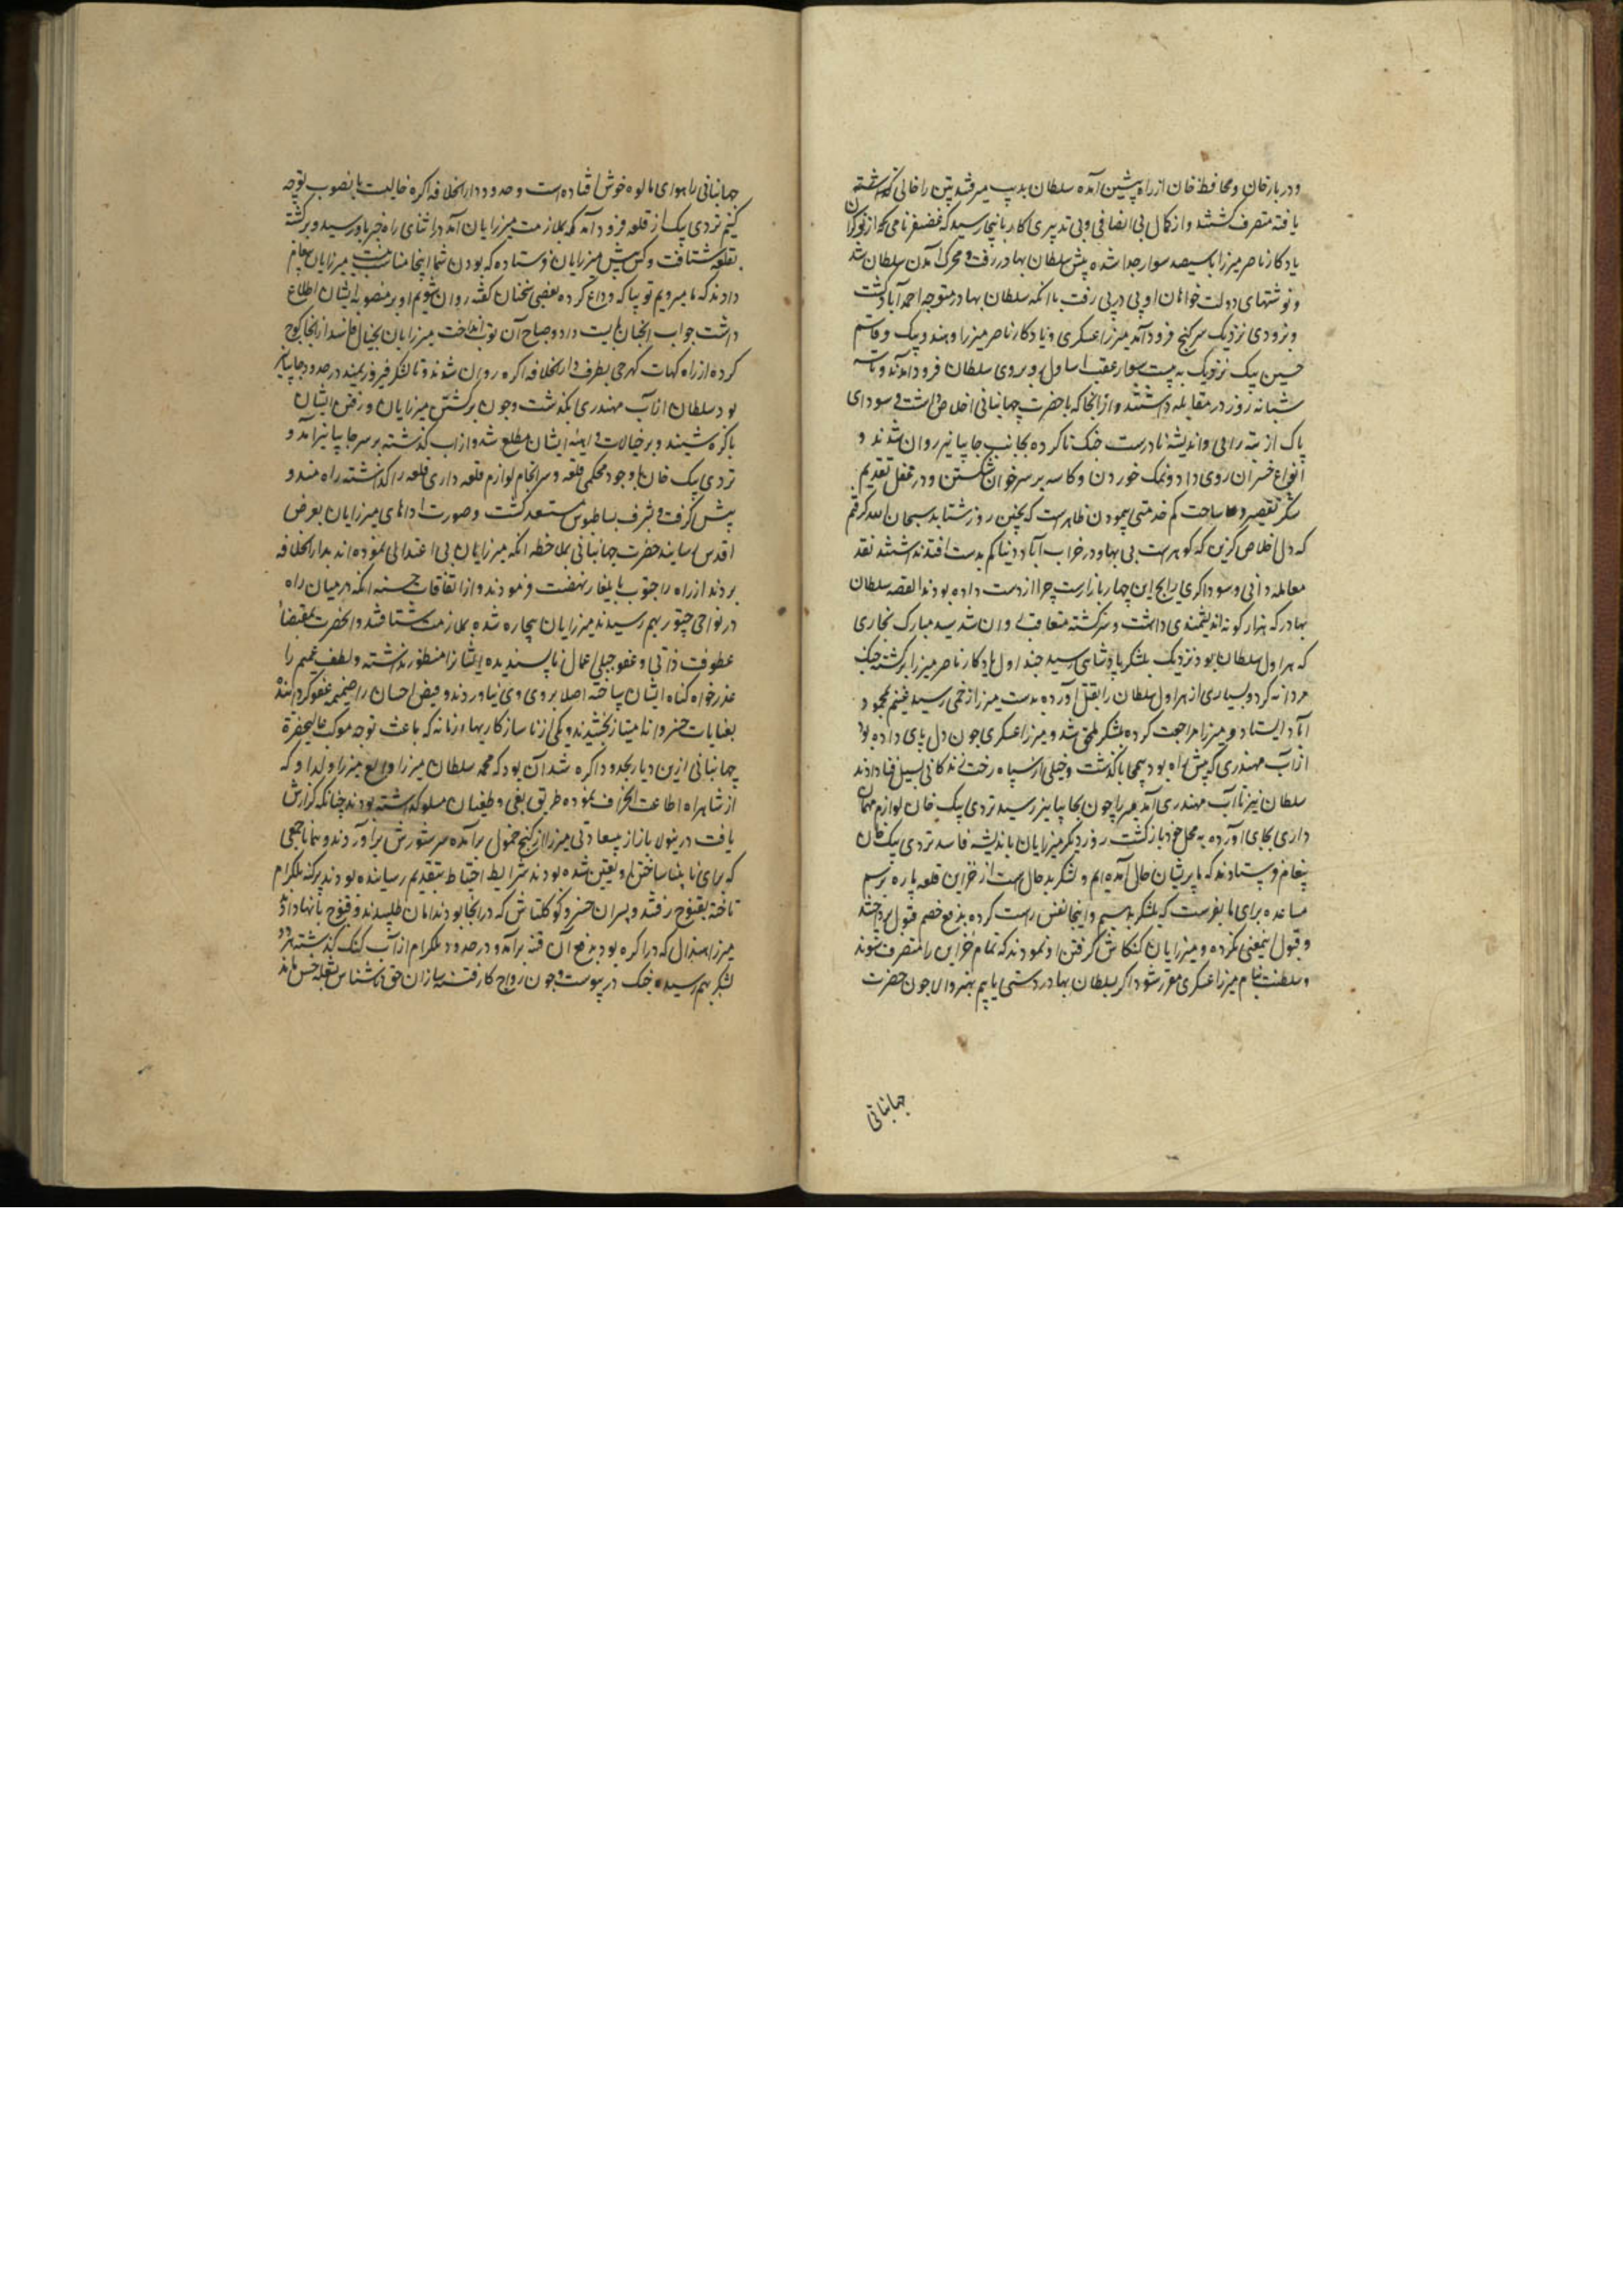 و دریا خان و محافظ خان از راه پیشین آمده سلطان بدیب میرفتند پتن را خالی گذاشته
یافته متصرف گشتند و از کمال بی انصافی و بی تدبیری کار باینجا رسید که غضنفر نامی که از نوکران
یادکار ناصر میرزا با سیصد سوار جدا شده پیش سلطان بهادر رفت و محرک آمدن سلطان شد
و نوشتهای دولت خواهان او پی در پی رفت تا انکه سلطان بهادر متوجه احمدآباد کشت
و بزودی نزدیک سرکنج فرود آمد میرزا عسکری و یادکار ناصر میرزا و هندو بیک و قاسم
حسین بیک نزدیک به بیست سوار عقب اساول روبروی سلطان فرود آمدند و تا سه
شبانه روز در مقابله داشتند و از انجا که با حضرت جهانبانی اخلاص نداشتند سودای
پاک از ته رایی و اندیشهٔ نادرست جنک ناکرده بجانب جاپپانیر روان شدند و
انواع خسران روی داد و نمک خوردن و کاسه بر سر خوان شکستن و در محفل تقدیم
شکر تقصیر و ساحت کم خدمتی پیمودن ظاهر است که بچنین روز نشاند سبحان الله گرفتم
که دل اخلاص گزین که گوهریست بی بها و در خراب آباد دنیا کم بدست افتد نداشتند نقد
معامله دانی و سوداگری که رایج این چهار بازارست چرا از دست داده بودند القصه سلطان
بهادر که هزار کونه اندیشمندی داشت و سرکشته متعاقب روان شد سید مبارک بخاری
که هراول سلطان بود نزدیک بلشکر پادشاهی رسید چنداول یادکار ناصر میرزا برگشته جنک
مردانه کرد و بسیاری از هراول سلطان را بقتل آورده بدست میرزا زخمی رسید غنیم محمود
آباد ایستاد و میرزا مراجعت کرده بلشکر ملحق شد و میرزا عسکری چون دل پای داده بود
از آب مهندری که پیش راه بود بیمحابا کذشت و خیلی از سپاه رخت زندکانی بسیل فنا دادند
سلطان نیز تا آب مهندری آمد میرزا چون بجاپپانیر رسید تردی بیک خان لوازم مهمان
داری بجای آورده به محل خود بازکشت روز دیگر میرزایان باندیشهٔ فاسد تردی بیک خان
پیغام فرستادند که ما پریشان حال آمده ایم و لشکر بدحال است از خزاین قلعه پاره برسم
مساعده برای ما بفرست که بلشکر بدهیم و اینجا نفس راست کرده بدفع خصم
و قبول اینمعنی نکرده و میرزایان کنکاش گرفتن او نمودند که تمام خزاین را متصرف شوند
و سلطنت بنام میرزا عسکری مقرر شود اگر بسلطان بهادر دستی یابیم بهتر و الا چون حضرت
جهانبانی
جهانبانی را هوای مالوه خوش افتاده است و حدود دار الخلافه اکره خالیست بانصوب توجه
کنیم تردی بیک از قلعه فرود آمد که بملازمت میرزایان آمد در اثنای راه خبر باو رسید و برکشته
بقلعه شتافت و کس پیش میرزایان فرستاده که بودن شما اینجا مناسب نیست میرزایان پیغام
دادند که ما میرویم تو بیا که وداع کرده بعضی سخنان کفته روان شویم او بر منصوبه ایشان اطلاع
داشت جواب انچنان بایست داد و صباح آن توپ انداخت میرزایان بخیال فاسد از انجا کوچ
کرده از راه کهات کهرجی بطرف دار الخلافه اکره روان شدند و تا لشکر فیروزیمند در حدود جاپپانیر
بود سلطان از آب مهندری نکذشت و چون برکشتن میرزایان و رفتن ایشان
باکره شنید و بر خیالات ایشان مطلع شد و از آب کذشته بر سر جاپپانیر آمد و
تردی بیک خان با وجود محکمی قلعه و سرانجام لوازم قلعه داری قلعه را کذاشته راه مندو
پیش کرفت و بشرف بساطبوس مستسعد کشت و صورت اداهای میرزایان بعرض
اقدس رسانید حضرت جهانبانی بملاحظه انکه میرزایان بی اعتدالی نموده اند بدار الخلافه
بردند از راه چیتور بایلغار نهضت فرمودند و از اتفاقات حسنه انکه در میان راه
در نواحی چیتور بهم رسیدند میرزایان بیچاره شده بملازمت شتافتند و انحضرت بمقتضای
عطوفت ذاتی و عفو جبلی اعمال ناپسندیده ایشانرا منظور نداشته و لطف عمیم را
عذر خواه کناه ایشان ساخته اصلا بروی نیاوردند و فیض احسان را ضمیمه عفو کردانند
بعنایات خسروانه امتیاز بخشیدند و یکی از ناسازکاریها زمانه که باعث توجه موکب عالیحضرة
جهانبانی ازین دیار بحدود اکره شد آن بود که محمد سلطان میرزا و الغ میرزا ولد او که
از شاهراه اطاعت انحراف نموده طریق بغی و طغیان مسلوک داشته بودند چنانکه کزارش
یافت درینولا باز از بیسعادتی میرزا از کنج خمول برآمده سر شورش برآوردند و با جمعی
که برای نابینا ساختن او تعین شده بودند شرایط احتیاط بتقدیم رسانده بودند پرکنه بلکرام
تاخته بقنوج رفتند و پسران خسرو کوکلتاش که در انجا بودند امان طلبیدند و قنوج بانها داد
میرزا هندال که در اکره بود بدفع آن فتنه برآمد و در حدود بلکرام از آب کنک کذشته هر دو
لشکر بهم رسیده جنک در پیوست و چون رواج کار فتنه سازان حق ناشناس بشعله خس ماند